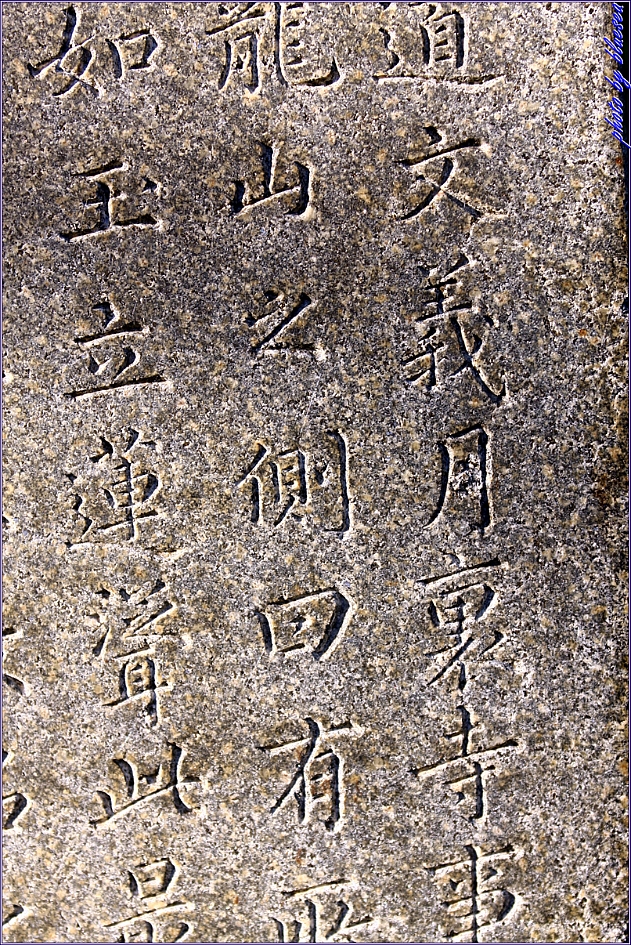 道文義月裏寺事
龍山之側曰有
如玉立蓮聳此
photo by